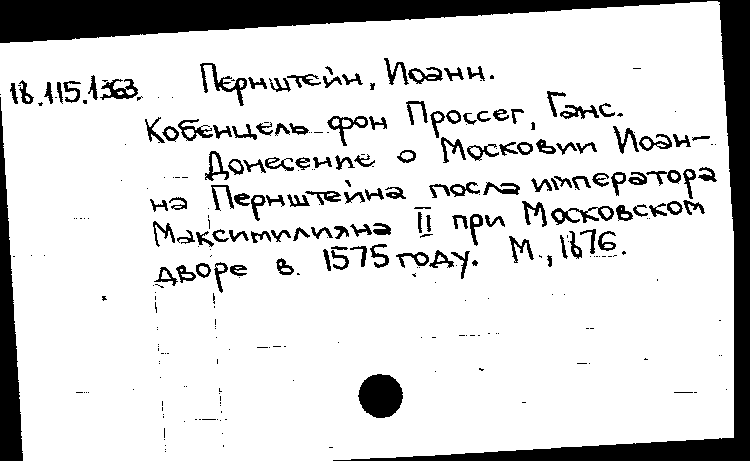 18.115.1363. Пернштейн, Иоанн.
Кобенцель фон Проссег, Ганс.
Донесение о Московии Иоан-
на Пернштейна посла императора
Максимилияна II при Московском
дворе в 1575 году. М., 1876.